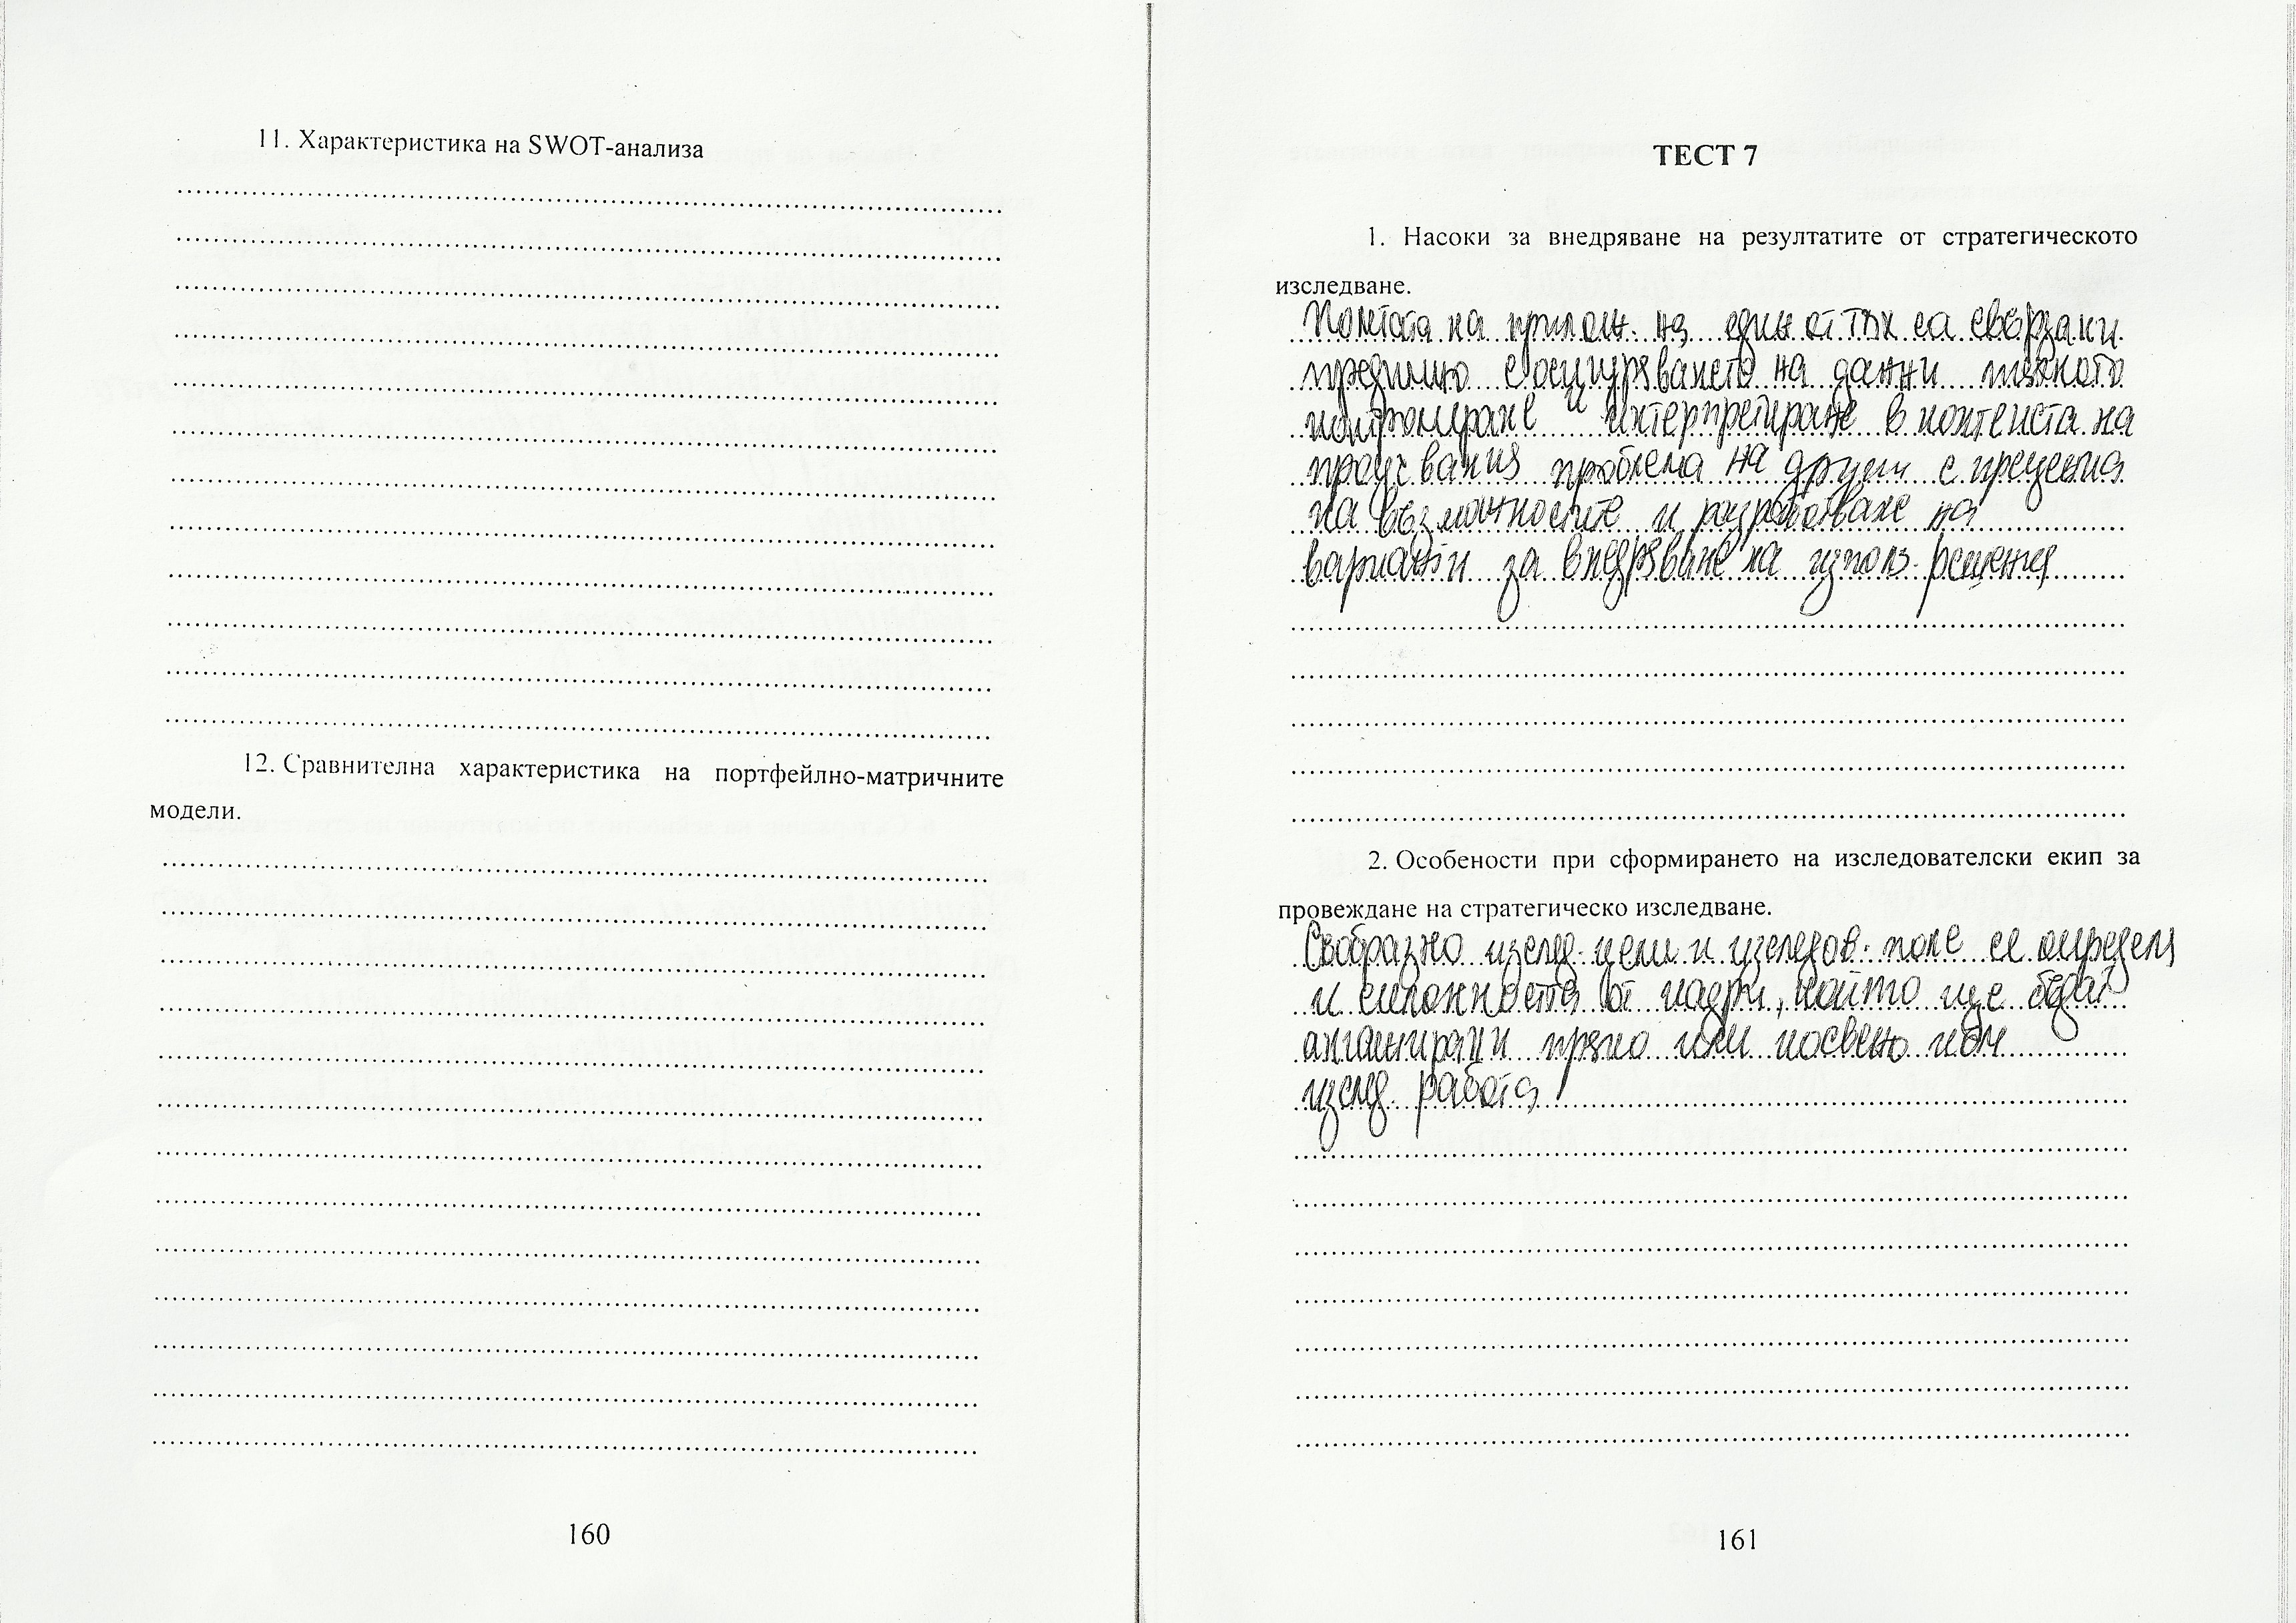 11. Характеристика на SWOT-анализа
12. Сравнителна характеристика на портфейлно-матричните
модели.
160
ТЕСТ 7
1. Насоки за внедряване на резултатите от стратегическото
изследване.
Полетата на прилож. на един от тях са свързани
предимно с осигуряването на данни тяхното
интерпретиране в контекста на
проучвания проблема на други с преценка
на възможностите и разработване на
варианти за внедряване на използ. решения
2. Особености при сформирането на изследователски екип за
провеждане на стратегическо изследване.
Съобразно изслед. цели и изследов. поле се определя
и от кадри, който ще бъдат
ангажирани пряко или косвено към
изслед. работа
161